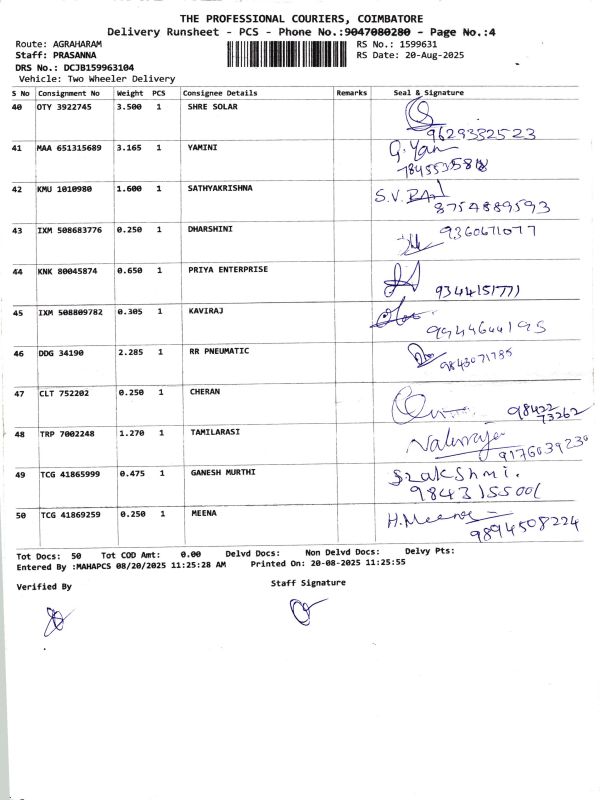 THE PROFESSIONAL COURIERS, COIMBATORE
Delivery Runsheet - PCS - Phone No.:9047080280 - Page No.:4
Route: AGRAHARAM RS No.: 1599631
Staff: PRASANNA RS Date: 20-Aug-2025
DRS No.: DCJB159963104
Vehicle: Two Wheeler Delivery
S No Consignment No Weight PCS Consignee Details Remarks Seal & Signature
40 OTY 3922745 3.500 1 SHRE SOLAR
9629332523
41 MAA 651315689 3.165 1 YAMINI G.Yam
42 KMU 1010980 1.600 1 SATHYAKRISHNA S.V.
8754889593
43 IXM 508683776 0.250 1 DHARSHINI 9360671077
44 KNK 80045874 0.650 1 PRIYA ENTERPRISE
9344151771
45 IXM 508809782 0.305 1 KAVIRAJ
9944644195
46 DDG 34190 2.285 1 RR PNEUMATIC
9843071785
47 CLT 752202 0.250 1 CHERAN
98422
73262
48 TRP 7002248 1.270 1 TAMILARASI
9176039230
49 TCG 41865999 0.475 1 GANESH MURTHI
9843155001
50 TCG 41869259 0.250 1 MEENA H.Meena
9894508224
Tot Docs: 50 Tot COD Amt: 0.00 Delvd Docs: Non Delvd Docs: Delvy Pts:
Entered By :MAHAPCS 08/20/2025 11:25:28 AM Printed On: 20-08-2025 11:25:55
Verified By Staff Signature